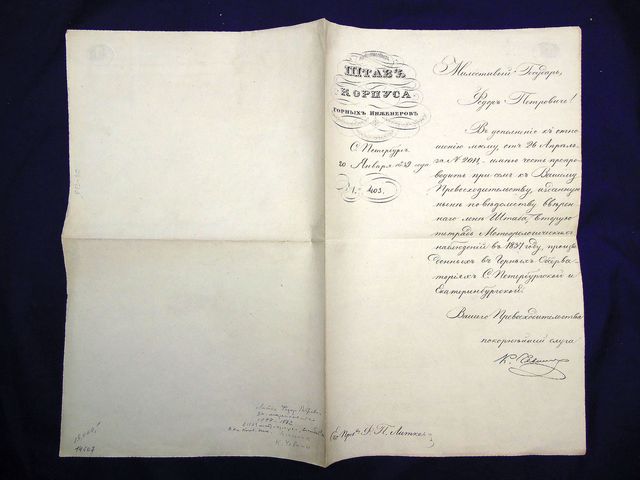 ШТАБЪ
КОРПУСА
ГОРНЫХЪ ИНЖЕНЕРОВЪ
С. Петербургъ
20 Января 1839 года
№ 403.
Милостивый Государь,
Ѳедоръ Петровичь!
Въ дополненіе къ отно-
шенію моему, отъ 26 Апрѣля
за № 2011 имѣю честь препро-
водить при семъ къ Вашему
Превосходительству, изданную
по вѣдомству ввѣрен-
наго мнѣ Штаба, вторую
тетрадь Метеорологическихъ
наблюденій въ 1837 году, произве-
денныхъ въ Горныхъ Обсерва-
торіяхъ С. Петербургской и
Екатеринбургской.
Вашего Превосходительства
покорнѣйшій слуга
К.
Его Прев. Ѳ. П. Литке.
14627